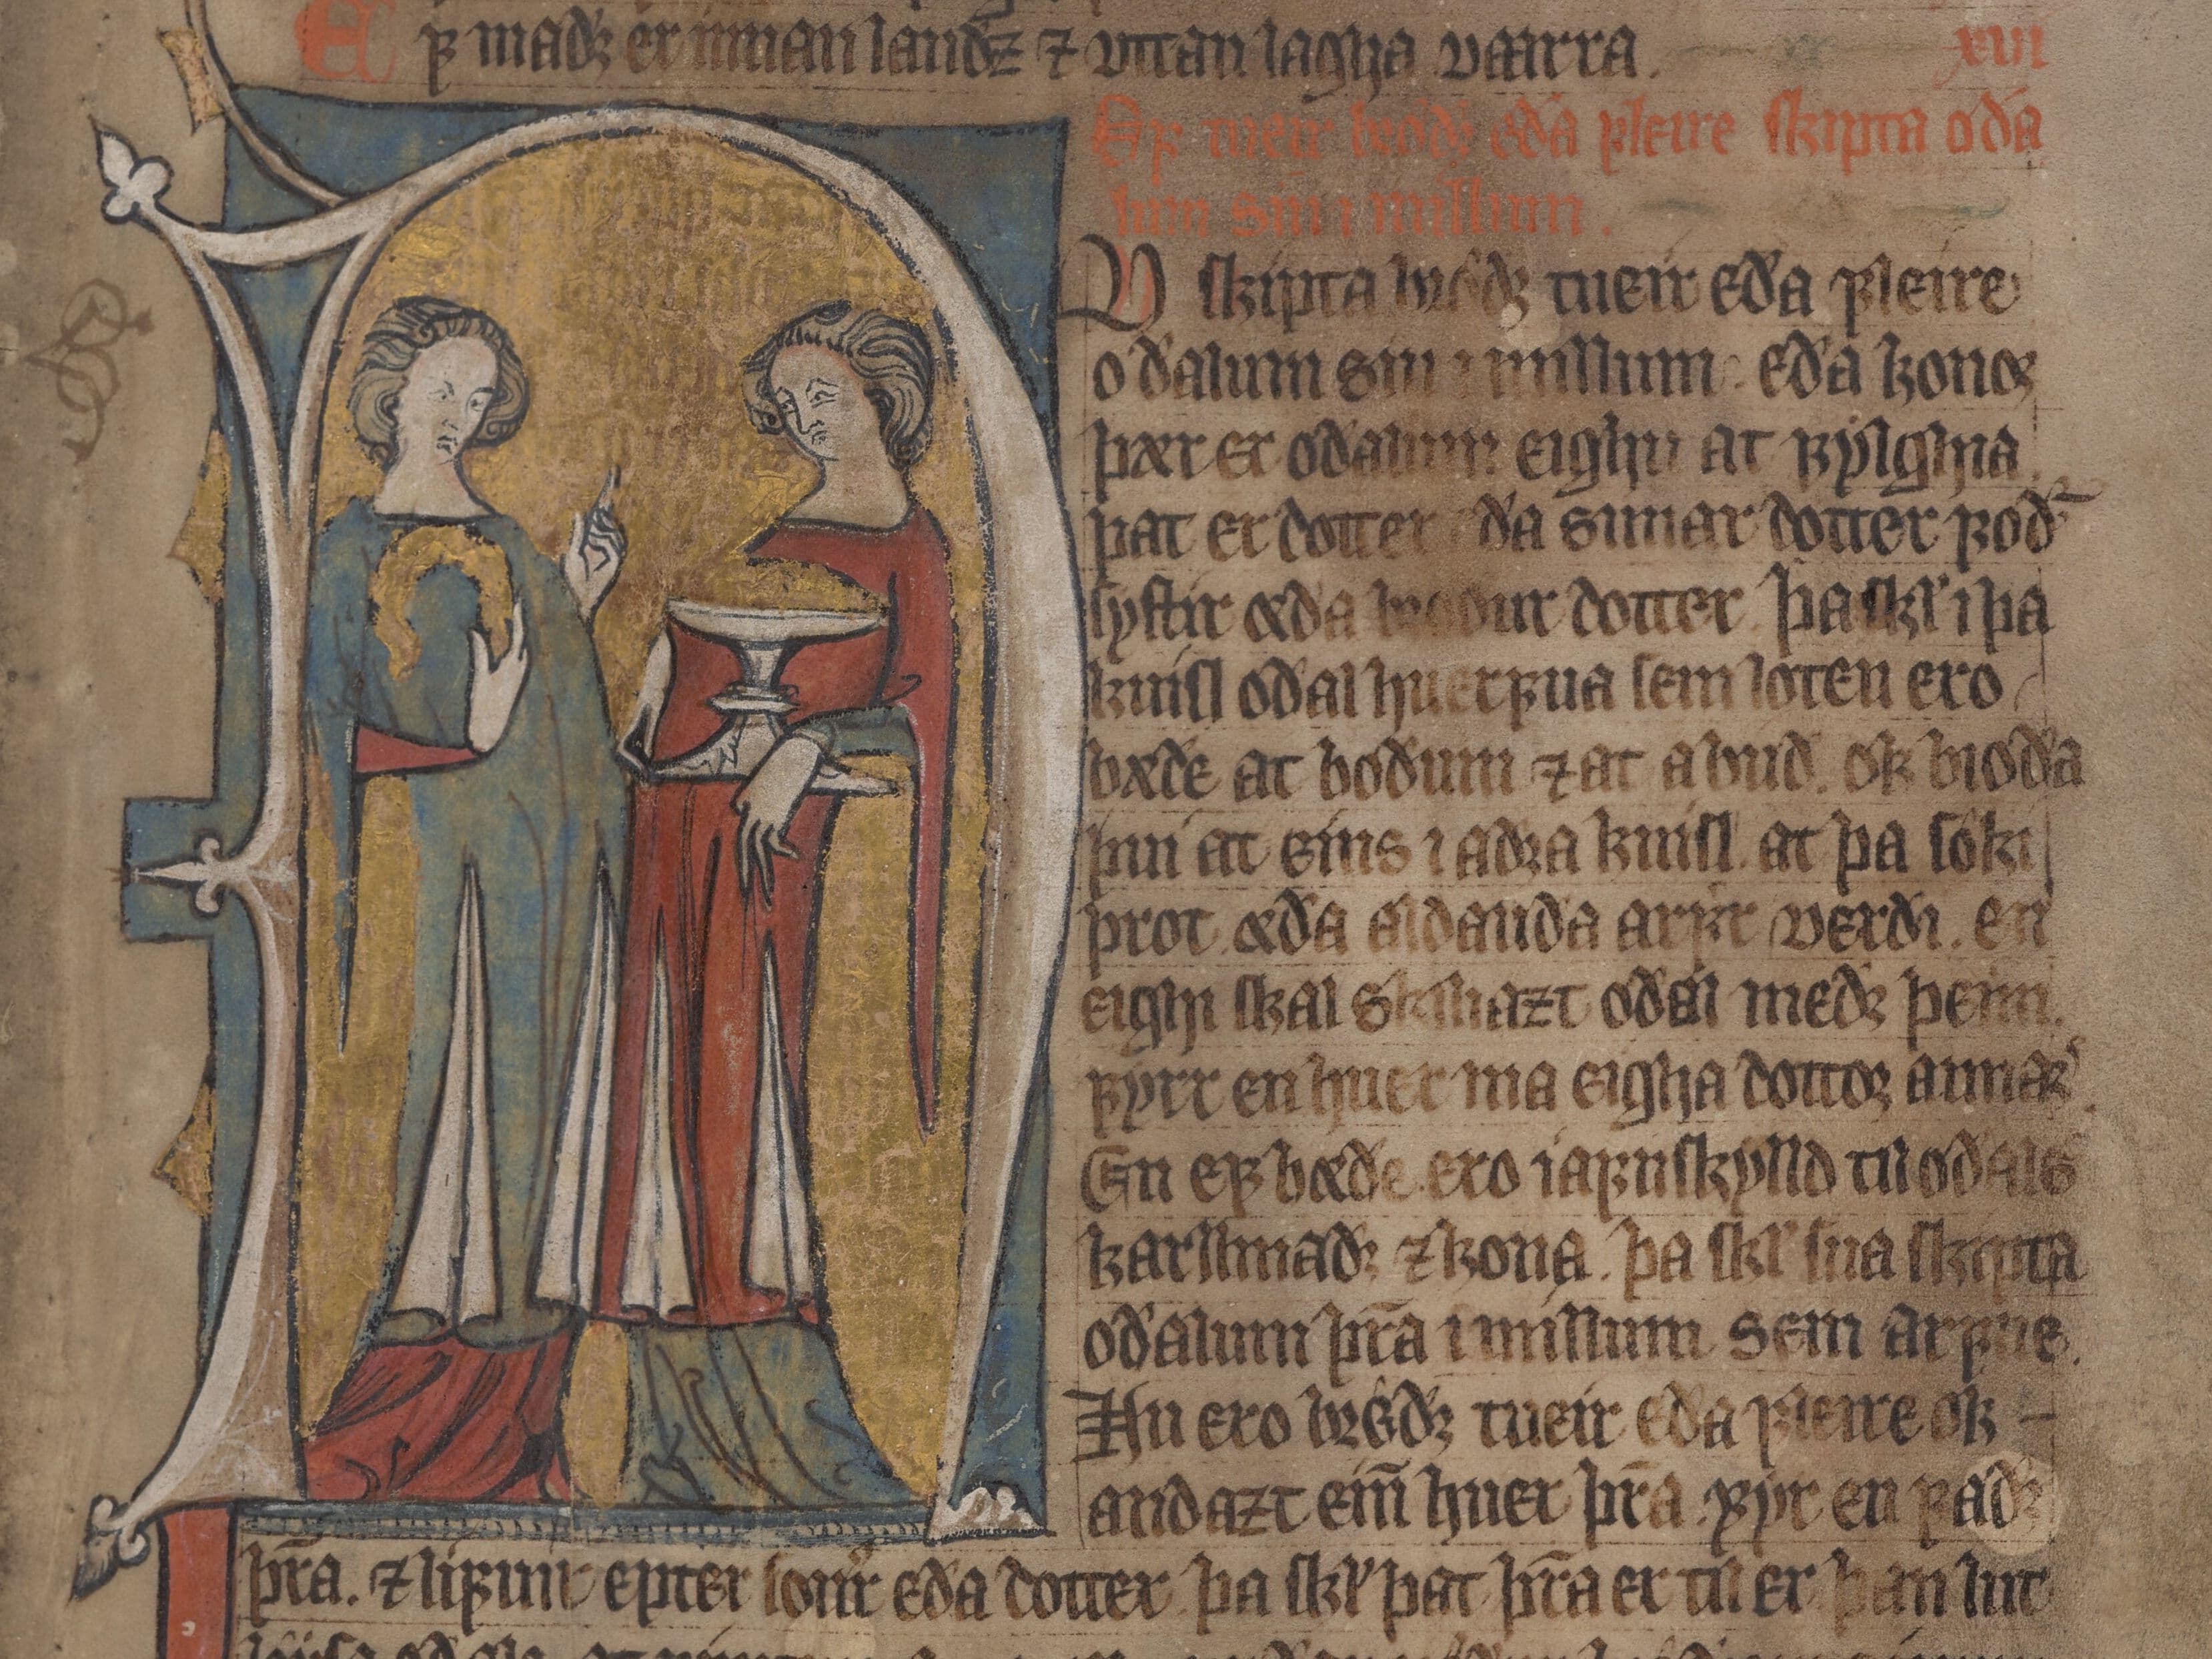 ꝼ madꝛ er innan landz ⁊ vttan lagha vaarra. xvii
Eꝼ tueir brødꝛ eða ꝼleire skipta oða
lum sin i millium.
Nv skipta brødꝛ tueir eða ꝼleire
oðalum sin i millium. eða konoꝛ
þær er oðalum eighu at ꝼylghia
þat er dotter eða sunar dotter ꝼoð
systir æða broður dotter. þa skl i þa
kuisl oðal huerꝼua sem loten ero
bæðe at boðum ⁊ at abuð. ok bioða
þui at eins i aðꝛa kuisl. at þa søki
þrot æða aldauða arꝼr verði. en
eighi skal skiliazt oðal meðꝛ þeim.
ꝼyrr en huer ma eigha dottoꝛ annars.
En eꝼ bæðe ero iaꝼnskylld til oðals
karllmaðꝛ ⁊ kona. þa skl sua skipta
oðalum þra i millium sem arꝼue.
Nu ero brøðꝛ tueir eða ꝼleire ok
andazt ein huer þra. ꝼyr en ꝼaðꝛ
þra. ⁊ liꝼuir epter sonr eða dotter. þa skl þat þra er til er þan lut